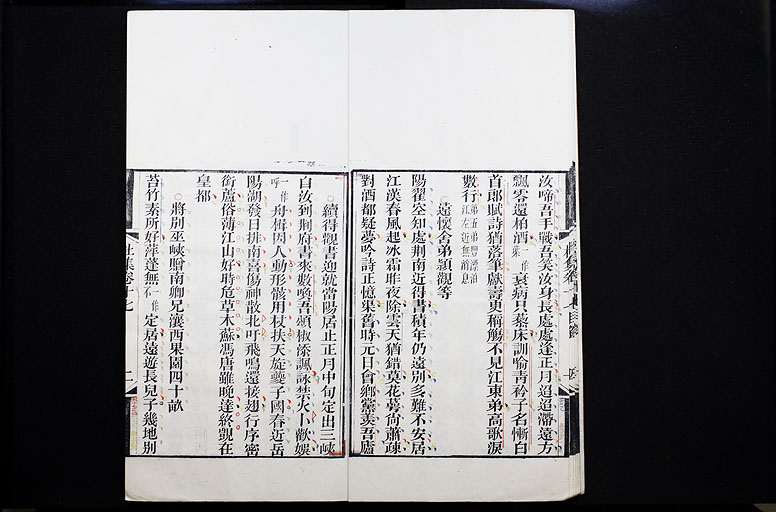 汝啼吾手戰吾笑汝身長處處逢正月迢迢滯遠方
飄零還柏酒一作葉衰病只藜床訓喻青衿子名慚白
首郎賦詩猶落筆獻壽更稱觴不見江東弟高歌淚
數行第五弟豐漂泊江左近無消息
遠懷舍弟穎觀等
陽翟空知處荆南近得書積年仍遠別多難不安居
江漢春風起冰霜昨夜除雲天猶錯莫花萼尚蕭疎
對酒都疑夢吟詩正憶渠舊時元日會鄉黨羨吾廬
續得觀書迎就當陽居止正月中旬定出三峽
自汝到荆府書來數喚吾頌椒添諷詠禁火卜歡娛
一作呼舟楫因人動形骸用杖扶天旋夔子國春近岳
陽湖發日排南喜傷神散北吁飛鳴還接翅行序密
銜蘆俗薄江山好時危草木蘇馮唐雖晚達終覬在
皇都
將別巫峽贈南卿兄瀼西果園四十畝
苔竹素所好萍蓬無一作定居遠遊長兒子幾地別
杜集卷十七
二